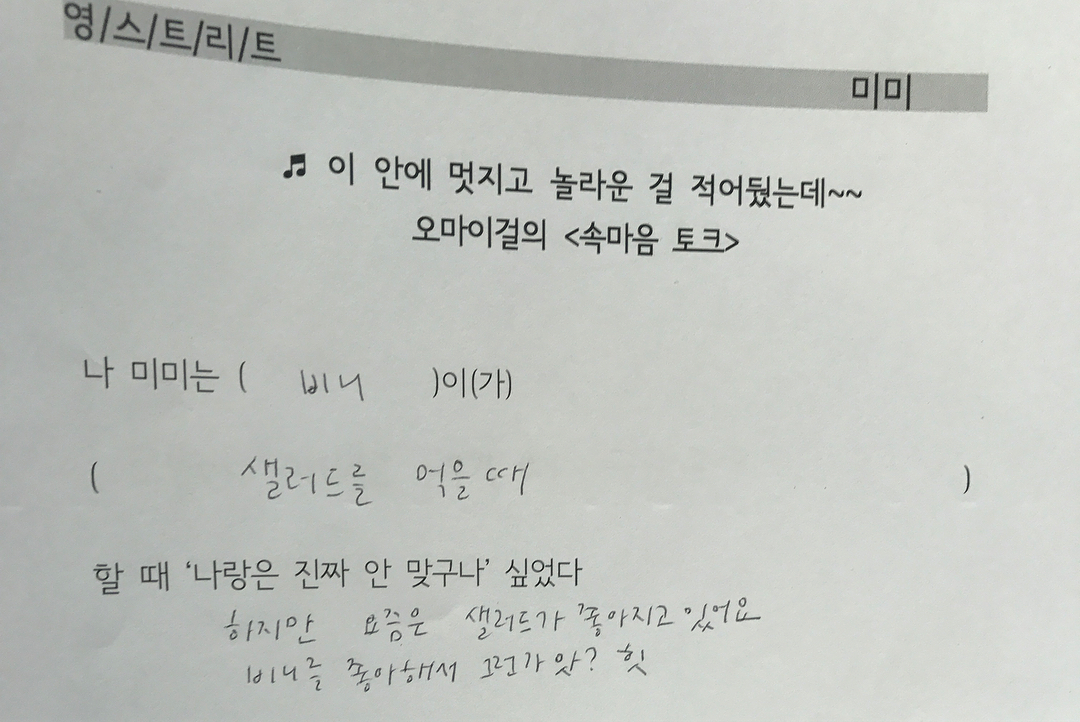 영/스/트/리/트
미미
♬ 이 안에 멋지고 놀라운 걸 적어뒀는데~~
오마이걸의 <속마음 토크>
나 미미는 ( 비니 )이(가)
( 샐러드를 먹을 때 )
할 때 ‘나랑은 진짜 안 맞구나’ 싶었다
하지만 요즘은 샐러드가 좋아지고 있어요
비니를 좋아해서 그런가 앗? 힛